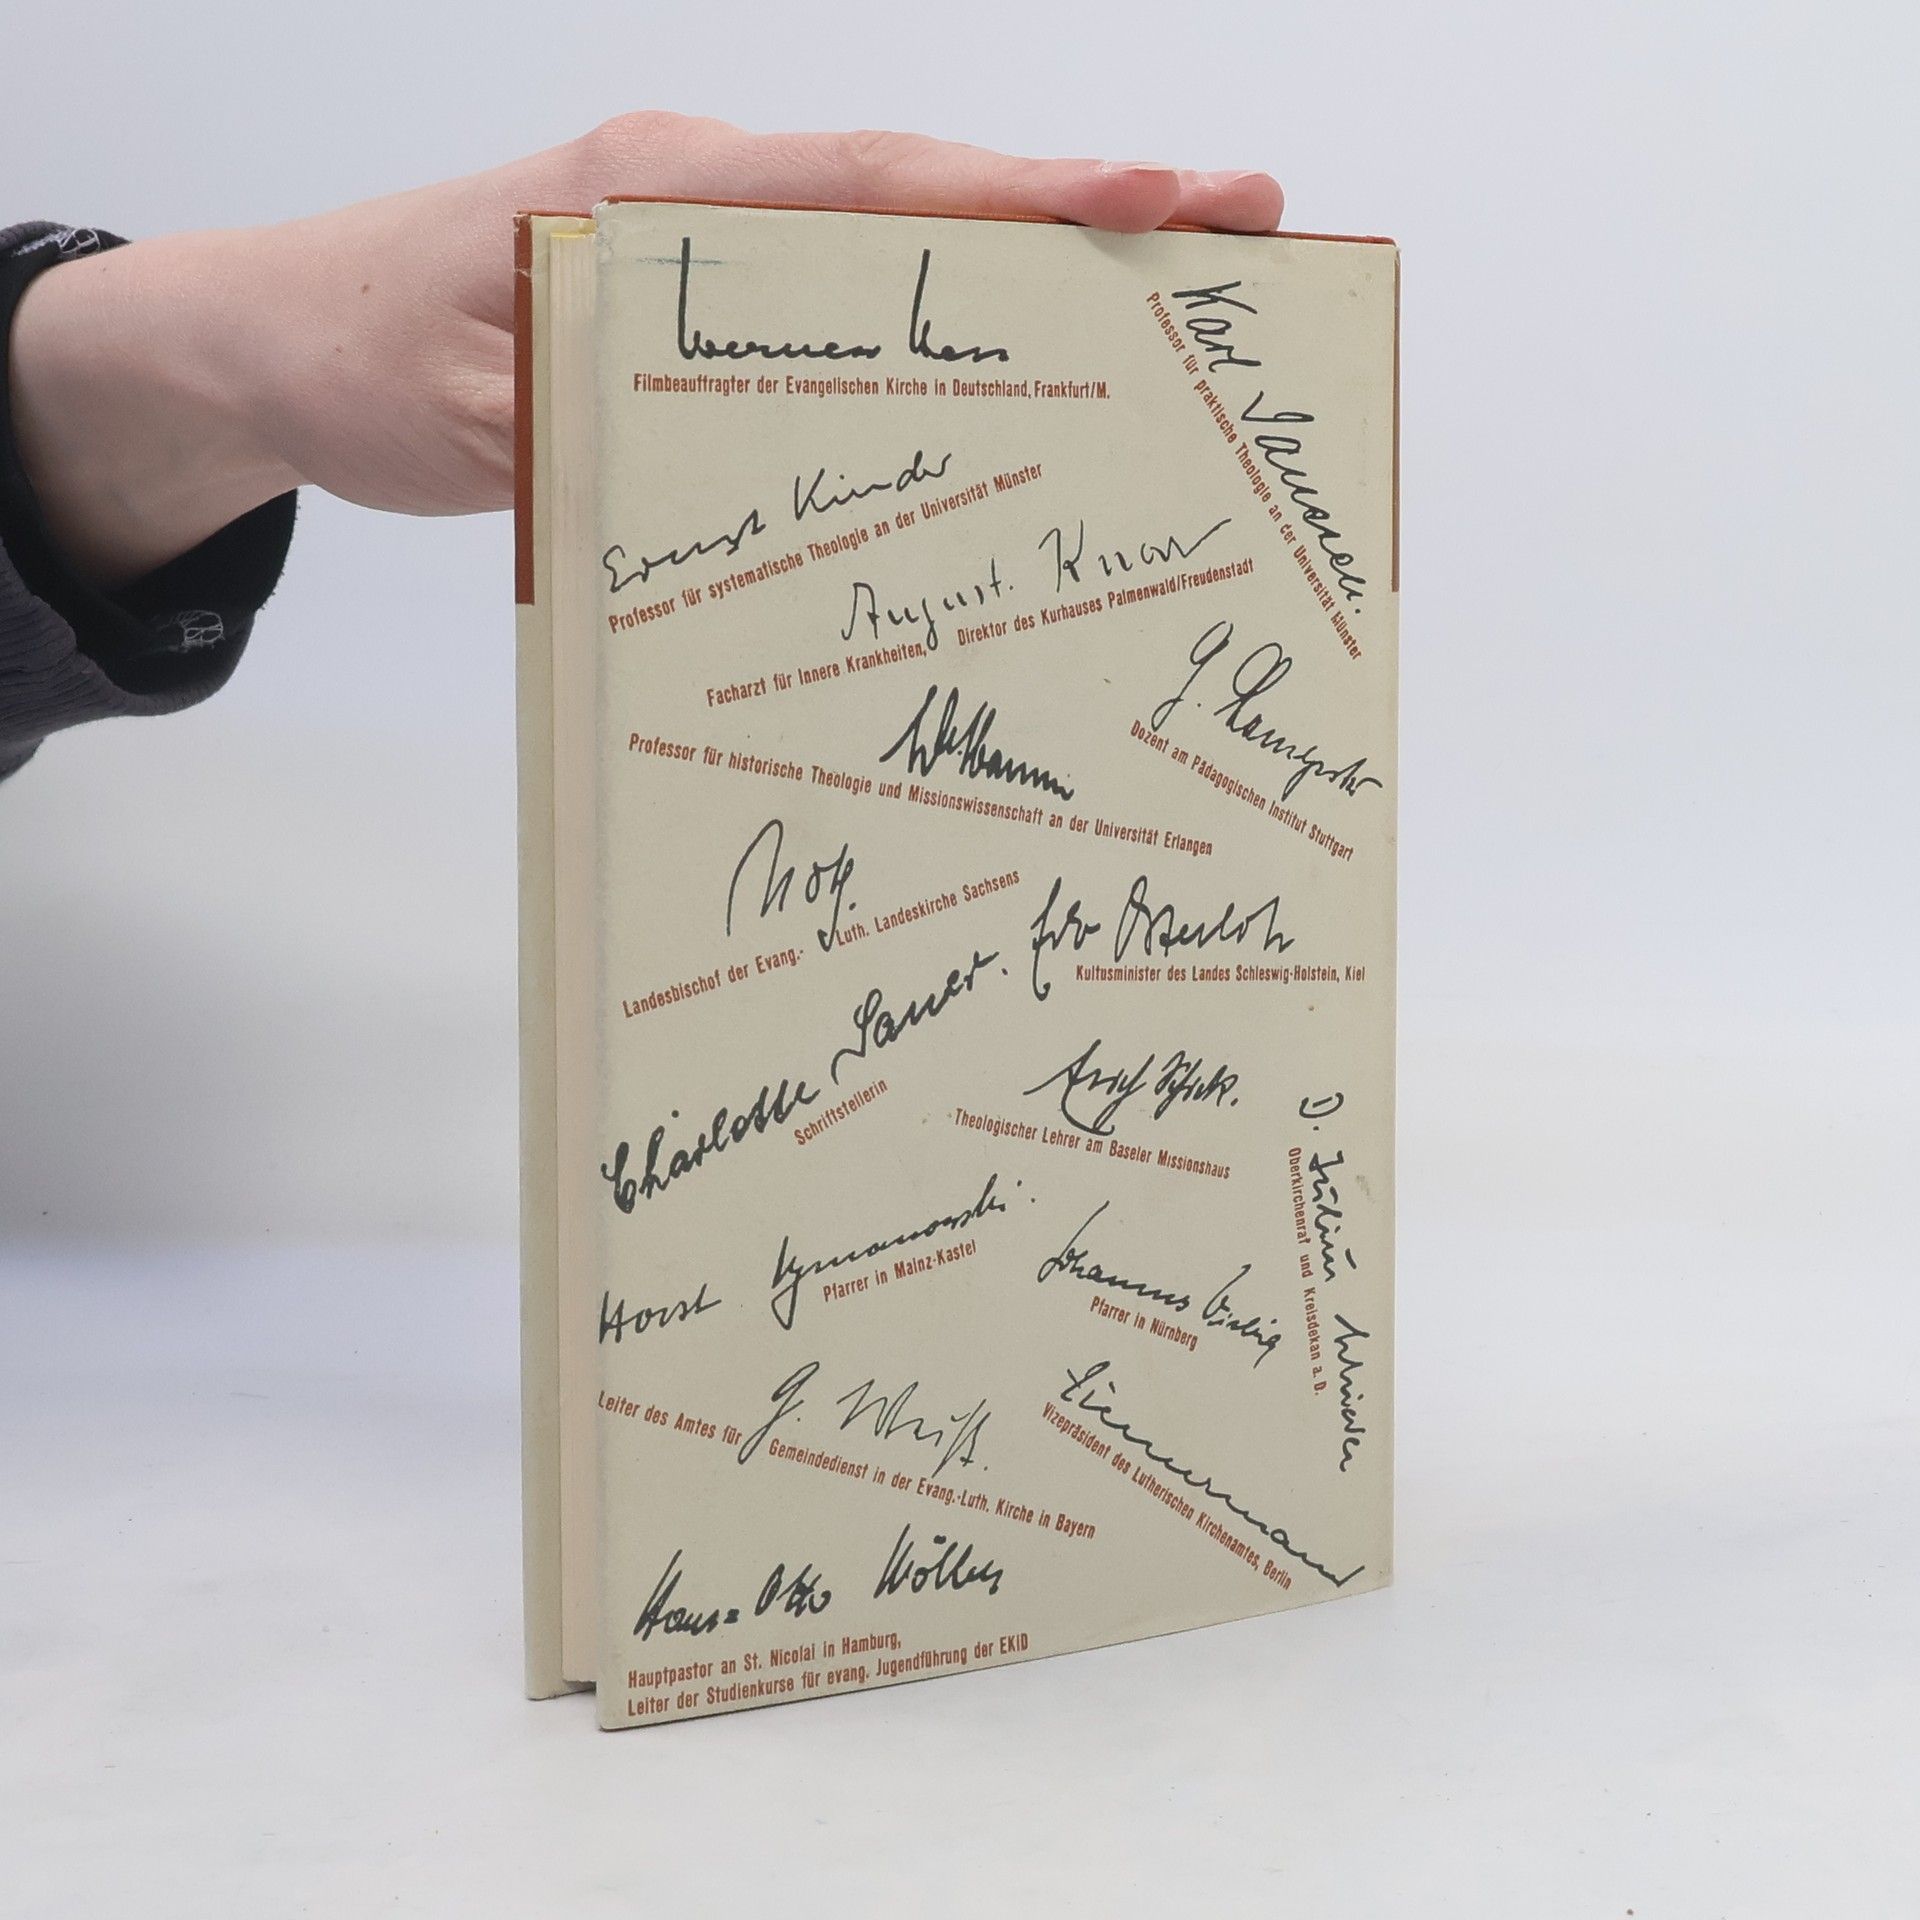 Werner Hess
Filmbeauftragter der Evangelischen Kirche in Deutschland, Frankfurt/M.
Karl Janssen.
Professor für praktische Theologie an der Universität Münster
Ernst Kinder
Professor für systematische Theologie an der Universität Münster
August Knorr
Facharzt für Innere Krankheiten, Direktor des Kurhauses Palmenwald/Freudenstadt
G.
Dozent am Pädagogischen Institut Stuttgart
W. Maurer
Professor für historische Theologie und Missionswissenschaft an der Universität Erlangen
Noth.
Landesbischof der Evang.-Luth. Landeskirche Sachsens
Edo Osterloh
Kultusminister des Landes Schleswig-Holstein, Kiel
Charlotte Sauer.
Schriftstellerin
Erich Schick.
Theologischer Lehrer am Baseler Missionshaus
D. Julius Schieder
Oberkirchenrat und Kreisdekan a. D.
Horst Symanowski.
Pfarrer in Mainz-Kastel
Johannes Viebig
Pfarrer in Nürnberg
G. Weiß.
Leiter des Amtes für Gemeindedienst in der Evang.-Luth. Kirche in Bayern
Zimmermann
Vizepräsident des Lutherischen Kirchenamtes, Berlin
Hans-Otto Wölber
Hauptpastor an St. Nicolai in Hamburg,
Leiter der Studienkurse für evang. Jugendführung der EKiD